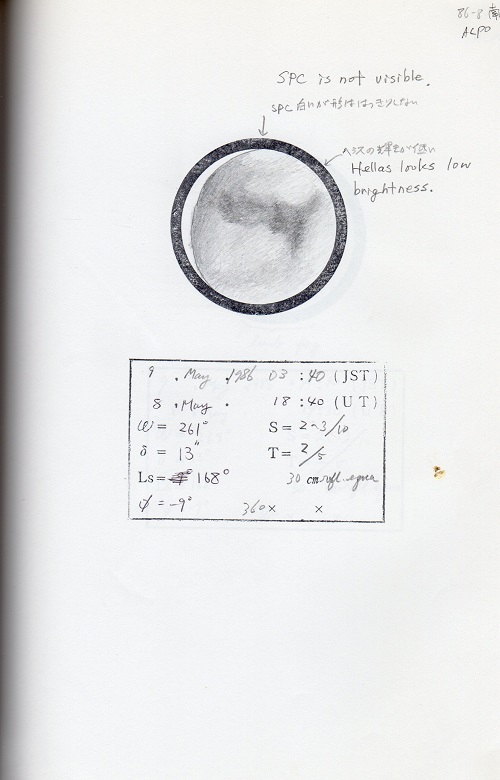 86-8 南
ALPO
SPC is not visible.
SPC 白いが形ははっきりしない
ヘラスの輝きが低い
Hellas looks low
brightness.
9 . May . 1986 03 : 40 (JST)
8 . May . 18 : 40 (UT)
ω = 261° S = 2~3/10
δ = 13" T = 2/5
Ls = 168° 30 cm refl.
φ = -9° 360× ×